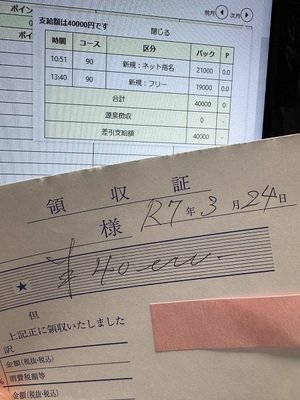 ポイン
前月 次月
支給額は40000円です
閉じる
時間 コース 区分 バック P
10:51 90 新規：ネット指名 21000 0.0
13:40 90 新規：フリー 19000 0.0
合計 40000 0
源泉徴収 0 -
差引支給額 40000 -
領収証
様 R7年3月24日
★
但
上記正に領収いたしました
訳
金額(税抜・税込)
消費税額等
金額(税抜・税込)